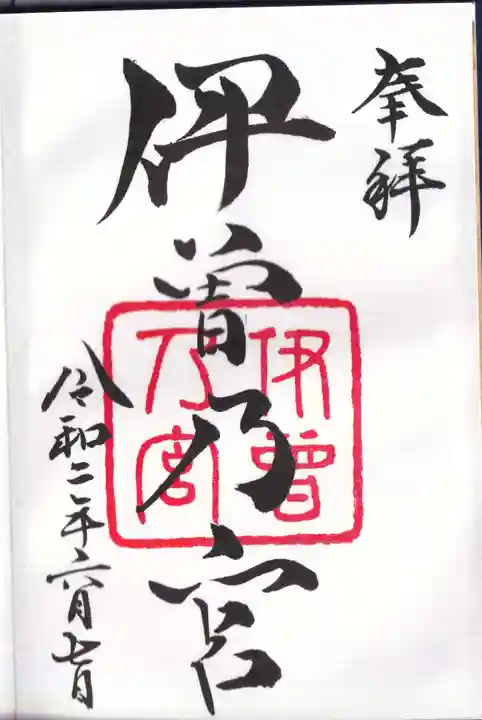 奉拝
伊曽乃宮
伊曾
乃宮
令和二年六月七日